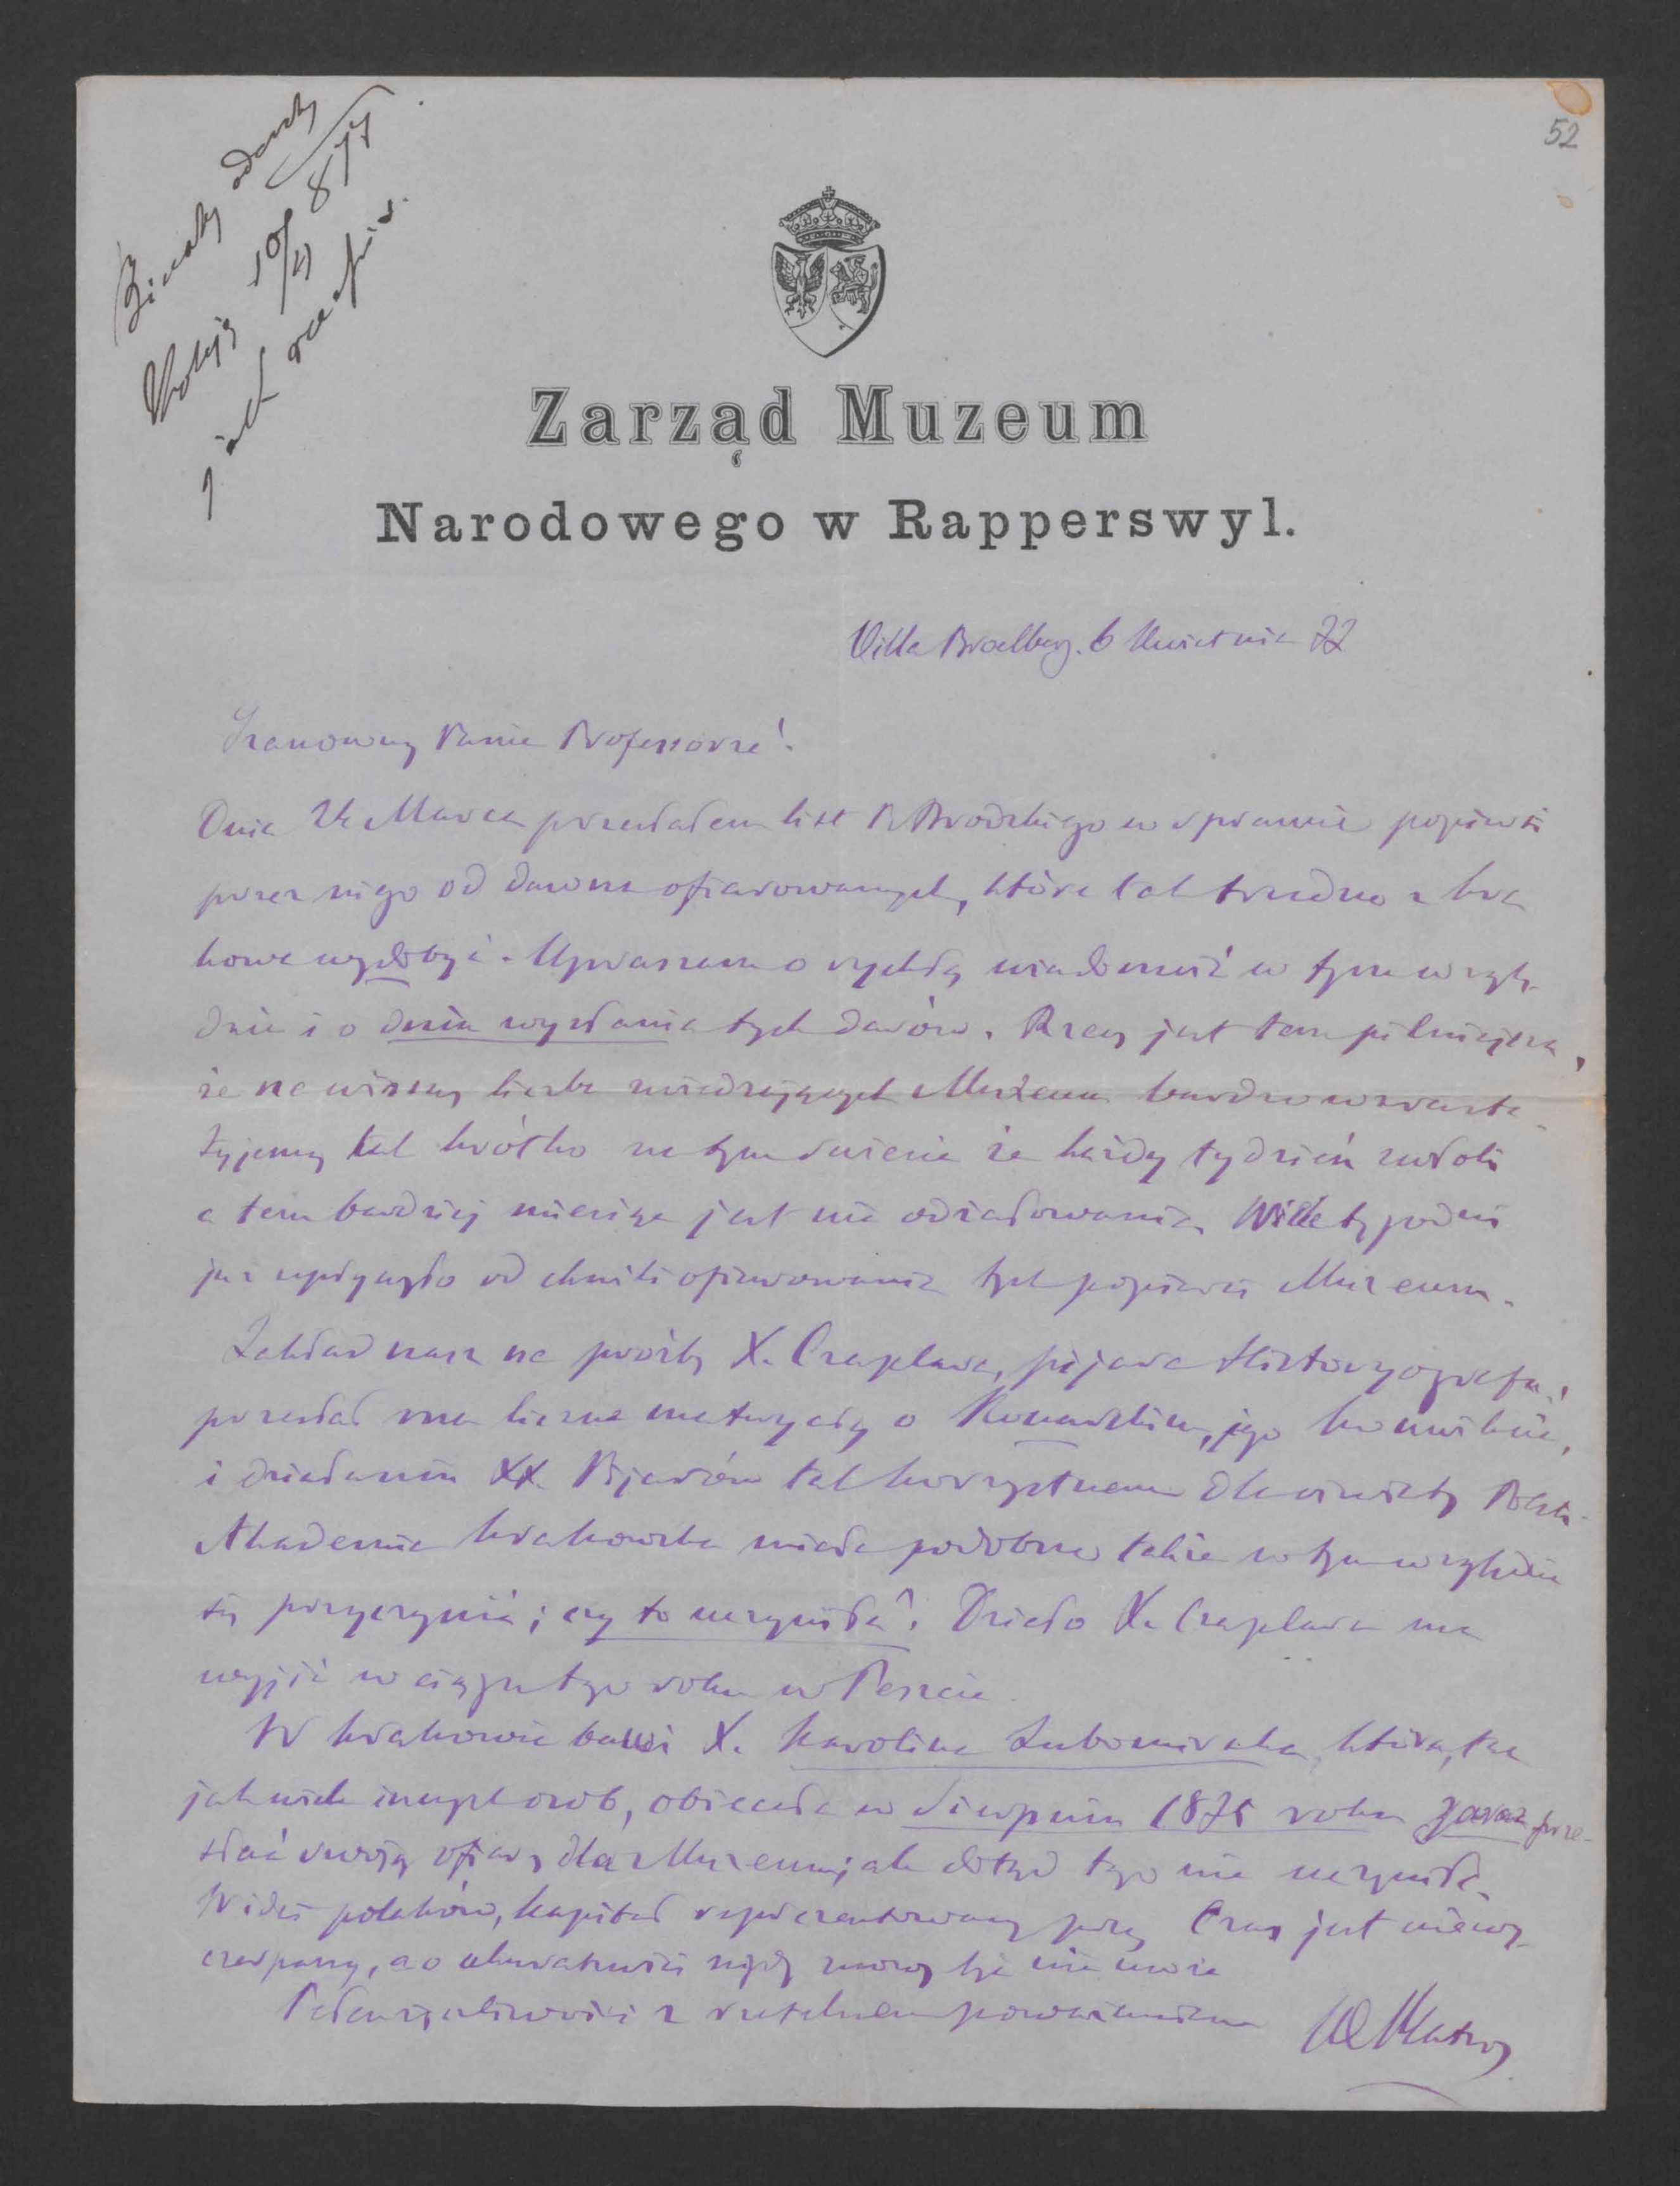 52
Zarząd Muzeum
Narodowego w Rapperswyl.
Villa Broelberg. 6 Kwietnia 77
Szanowny Panie Professorze!
Dnia 24 Marca przesłałem list P. Brodzkiego w sprawie popiersi
przez niego od dawna ofiarowanych, które tak trudno z Kra
kowa wydobyć. Upraszam o rychłą wiadomość w tym wzglę
dzie i o dniu wysłania tych darów. Rzecz jest tem pilniejsza,
że na wiosnę liczba zwiedzających Muzeum bardzo wzrasta
żyjemy tak krótko na tym świecie że każdy tydzień zwłoki
a tem bardziej miesiąc jest nie odżałowania. Wiele tygodni
już upłynęło od chwili ofiarowania tych popiersi Muzeum.
Zakład nasz na prośbę X. Czaplara, pijara Historyografa,
przesłał mu liczne materyały o Konarskim, jego
i działaniu XX. Pijarów tak korzystnem dla oświaty Polski
Akademia Krakowska miała podobno także w tym względzie
się przyczynić; czy to uczyniła? Dzieło X. Czaplara ma
wyjść w ciągu tego roku w Peszcie
W Krakowie bawi X. Karolina Lubomirska, która, tak
jak wiele innych osób, obiecała w sierpniu 1875 roku zaraz prze-
słać swoją ofiarę dla Muzeum, jak dotąd tego nie uczyniła.
polaków, kapitał reprezentowany przez Czas jest niewy
czerpany, a o nigdy mowy być nie może
Pełen życzliwości z rzetelnem poważaniem